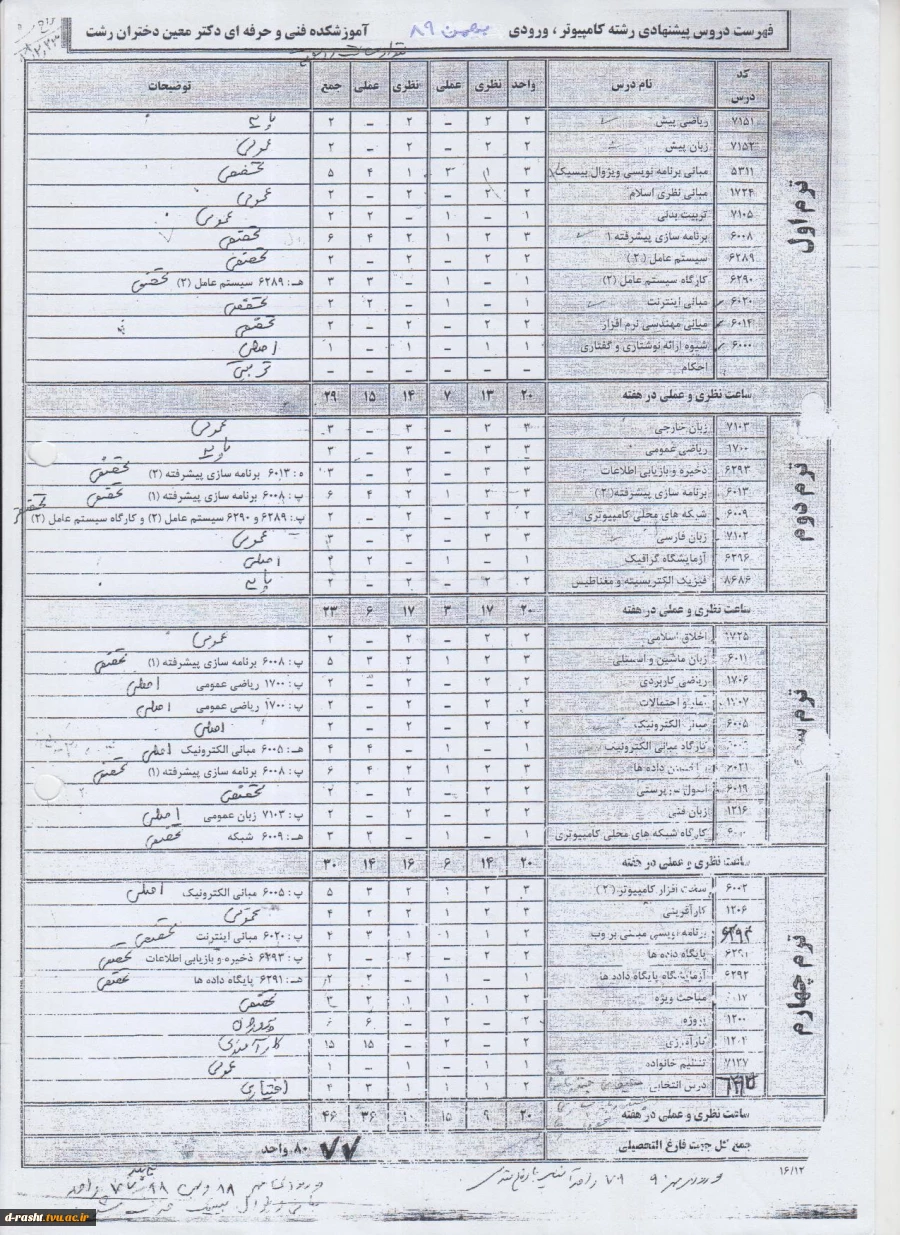 فهرست دروس پیشنهادی رشته کامپیوتر ، ورودی بهمن ۸۹ آموزشکده فنی و حرفه ای دکتر معین دختران رشت
کد درس نام درس واحد نظری عملی نظری عملی جمع توضیحات
ترم اول
۷۱۵۱ ریاضی پیش ۲ ۲ – ۲ – ۲ پایه
۷۱۵۲ زبان پیش ۲ ۲ – ۲ – ۲ عمومی
۵۳۱۱ مبانی برنامه نویسی ویژوال بیسیک ۳ ۱ ۴ ۵ تخصصی
۱۷۲۴ مبانی نظری اسلام ۲ ۲ – ۲ – ۲ عمومی
۷۱۰۵ تربیت بدنی ۱ – ۱ – ۲ ۲ عمومی
۶۰۰۸ برنامه سازی پیشرفته ۱ ۳ ۲ ۱ ۲ ۴ ۶ تخصصی
۶۲۸۹ سیستم عامل (۲) ۲ ۲ – ۲ – ۲ تخصصی
۶۲۹۰ کارگاه سیستم عامل (۲) ۱ – ۱ – ۳ ۳ هـ: ۶۲۸۹ سیستم عامل (۲) تخصصی
۶۰۲۰ مبانی اینترنت ۱ – ۱ – ۲ ۲ تخصصی
۶۰۱۴ مبانی مهندسی نرم افزار ۲ ۲ – ۲ – ۲ تخصصی
۶۰۰۰ شیوه ارائه نوشتاری و گفتاری ۱ ۱ – ۱ – ۱ اصلی
احکام – – – – – – تربیتی
ساعت نظری و عملی در هفته ۲۰ ۱۳ ۷ ۱۴ ۱۵ ۲۹
ترم دوم
۷۱۰۳ زبان خارجی ۳ ۳ – ۳ – ۳ عمومی
۱۷۰۰ ریاضی عمومی ۳ ۳ – ۳ – ۳ پایه
۶۲۹۳ ذخیره و بازیابی اطلاعات ۳ ۳ – ۳ – ۳ ه: ۶۰۱۳ برنامه سازی پیشرفته (۲) تخصصی
۶۰۱۳ برنامه سازی پیشرفته (۲) ۳ ۲ ۱ ۲ ۴ ۶ پ: ۶۰۰۸ برنامه سازی پیشرفته (۱) تخصصی
۶۰۰۹ شبکه های محلی کامپیوتری ۲ ۲ – ۲ – ۲ پ: ۶۲۸۹ و ۶۲۹۰ سیستم عامل (۲) و کارگاه سیستم عامل (۲) تخصصی
۷۱۰۲ زبان فارسی ۳ ۳ – ۳ – ۳ عمومی
۶۲۹۶ آزمایشگاه گرافیک ۱ – ۱ – ۲ اصلی
۸۶۸۶ فیزیک الکتریسیته و مغناطیس ۲ ۲ – ۲ – ۲ پایه
ساعت نظری و عملی در هفته ۲۰ ۱۷ ۳ ۱۷ ۶ ۲۳
اخلاق اسلامی ۲ ۲ – ۲ – ۲ عمومی
۶۰۱۱ زبان ماشین و اسمبلی ۳ ۲ ۱ ۲ ۳ ۵ پ: ۶۰۰۸ برنامه سازی پیشرفته (۱) تخصصی
۱۷۰۶ ریاضی کاربردی ۲ ۲ – ۲ – ۲ پ: ۱۷۰۰ ریاضی عمومی اصلی
۱۷۰۷ آمار و احتمالات ۲ ۲ – ۲ – ۲ پ: ۱۷۰۰ ریاضی عمومی اصلی
۶۰۰۵ مبانی الکترونیک ۲ ۲ – ۲ – ۲ اصلی
کارگاه مبانی الکترونیک ۱ – ۱ – ۴ ۴ هـ: ۶۰۰۵ مبانی الکترونیک اصلی
۶۰۲۱ داده ها ۳ ۲ ۱ ۲ ۴ ۶ پ: ۶۰۰۸ برنامه سازی پیشرفته (۱) تخصصی
۶۰۱۹ اصول سرپرستی ۲ ۲ – ۲ – ۲ تخصصی
۱۲۱۶ زبان فنی ۲ ۲ – ۲ – ۲ پ: ۷۱۰۳ زبان عمومی اصلی
کارگاه شبکه های محلی کامپیوتری ۱ – ۱ – ۳ ۳ هـ: ۶۰۰۹ شبکه تخصصی
ساعت نظری و عملی در هفته ۲۰ ۱۴ ۶ ۱۶ ۱۴ ۳۰
ترم چهارم
۶۰۰۲ سخت افزار کامپیوتر (۲) ۳ ۲ ۱ ۲ ۳ ۵ پ: ۶۰۰۵ مبانی الکترونیک اصلی
۱۲۰۶ کارآفرینی ۳ ۲ ۱ ۲ ۲ ۴ عمومی
۶۲۹۴ برنامه نویسی مبتنی بر وب ۲ ۱ ۱ ۱ ۳ ۴ پ: ۶۰۲۰ مبانی اینترنت تخصصی
۶۲۹۱ پایگاه داده ها ۲ ۲ – ۲ – ۲ پ: ۶۲۹۳ ذخیره و بازیابی اطلاعات تخصصی
۶۲۹۲ آزمایشگاه پایگاه داده ها ۱ – ۱ – ۲ ۲ هـ: ۶۲۹۱ پایگاه داده ها تخصصی
مباحث ویژه ۲ ۱ ۱ ۱ ۲ ۳ تخصصی
۱۲۰۰ پروژه ۲ – ۲ – ۶ ۶
۱۲۰۴ کارآموزی ۲ – ۲ – ۱۵ ۱۵ کارآموزی
۷۱۲۷ تنظیم خانواده ۱ ۱ – ۱ – ۱ عمومی
درس انتخابی ۲ ۱ ۱ ۱ ۳ ۴ اختیاری
ساعت نظری و عملی در هفته ۲۰ ۹ ۱۰ ۳۶ ۴۶
جمع کل جهت فارغ التحصیلی ۷۷ ۸۰ واحد
۱۶/۱۲
ورودی مهر ۹۰ ۷۹ واحد
d-rasht.tvu.ac.ir